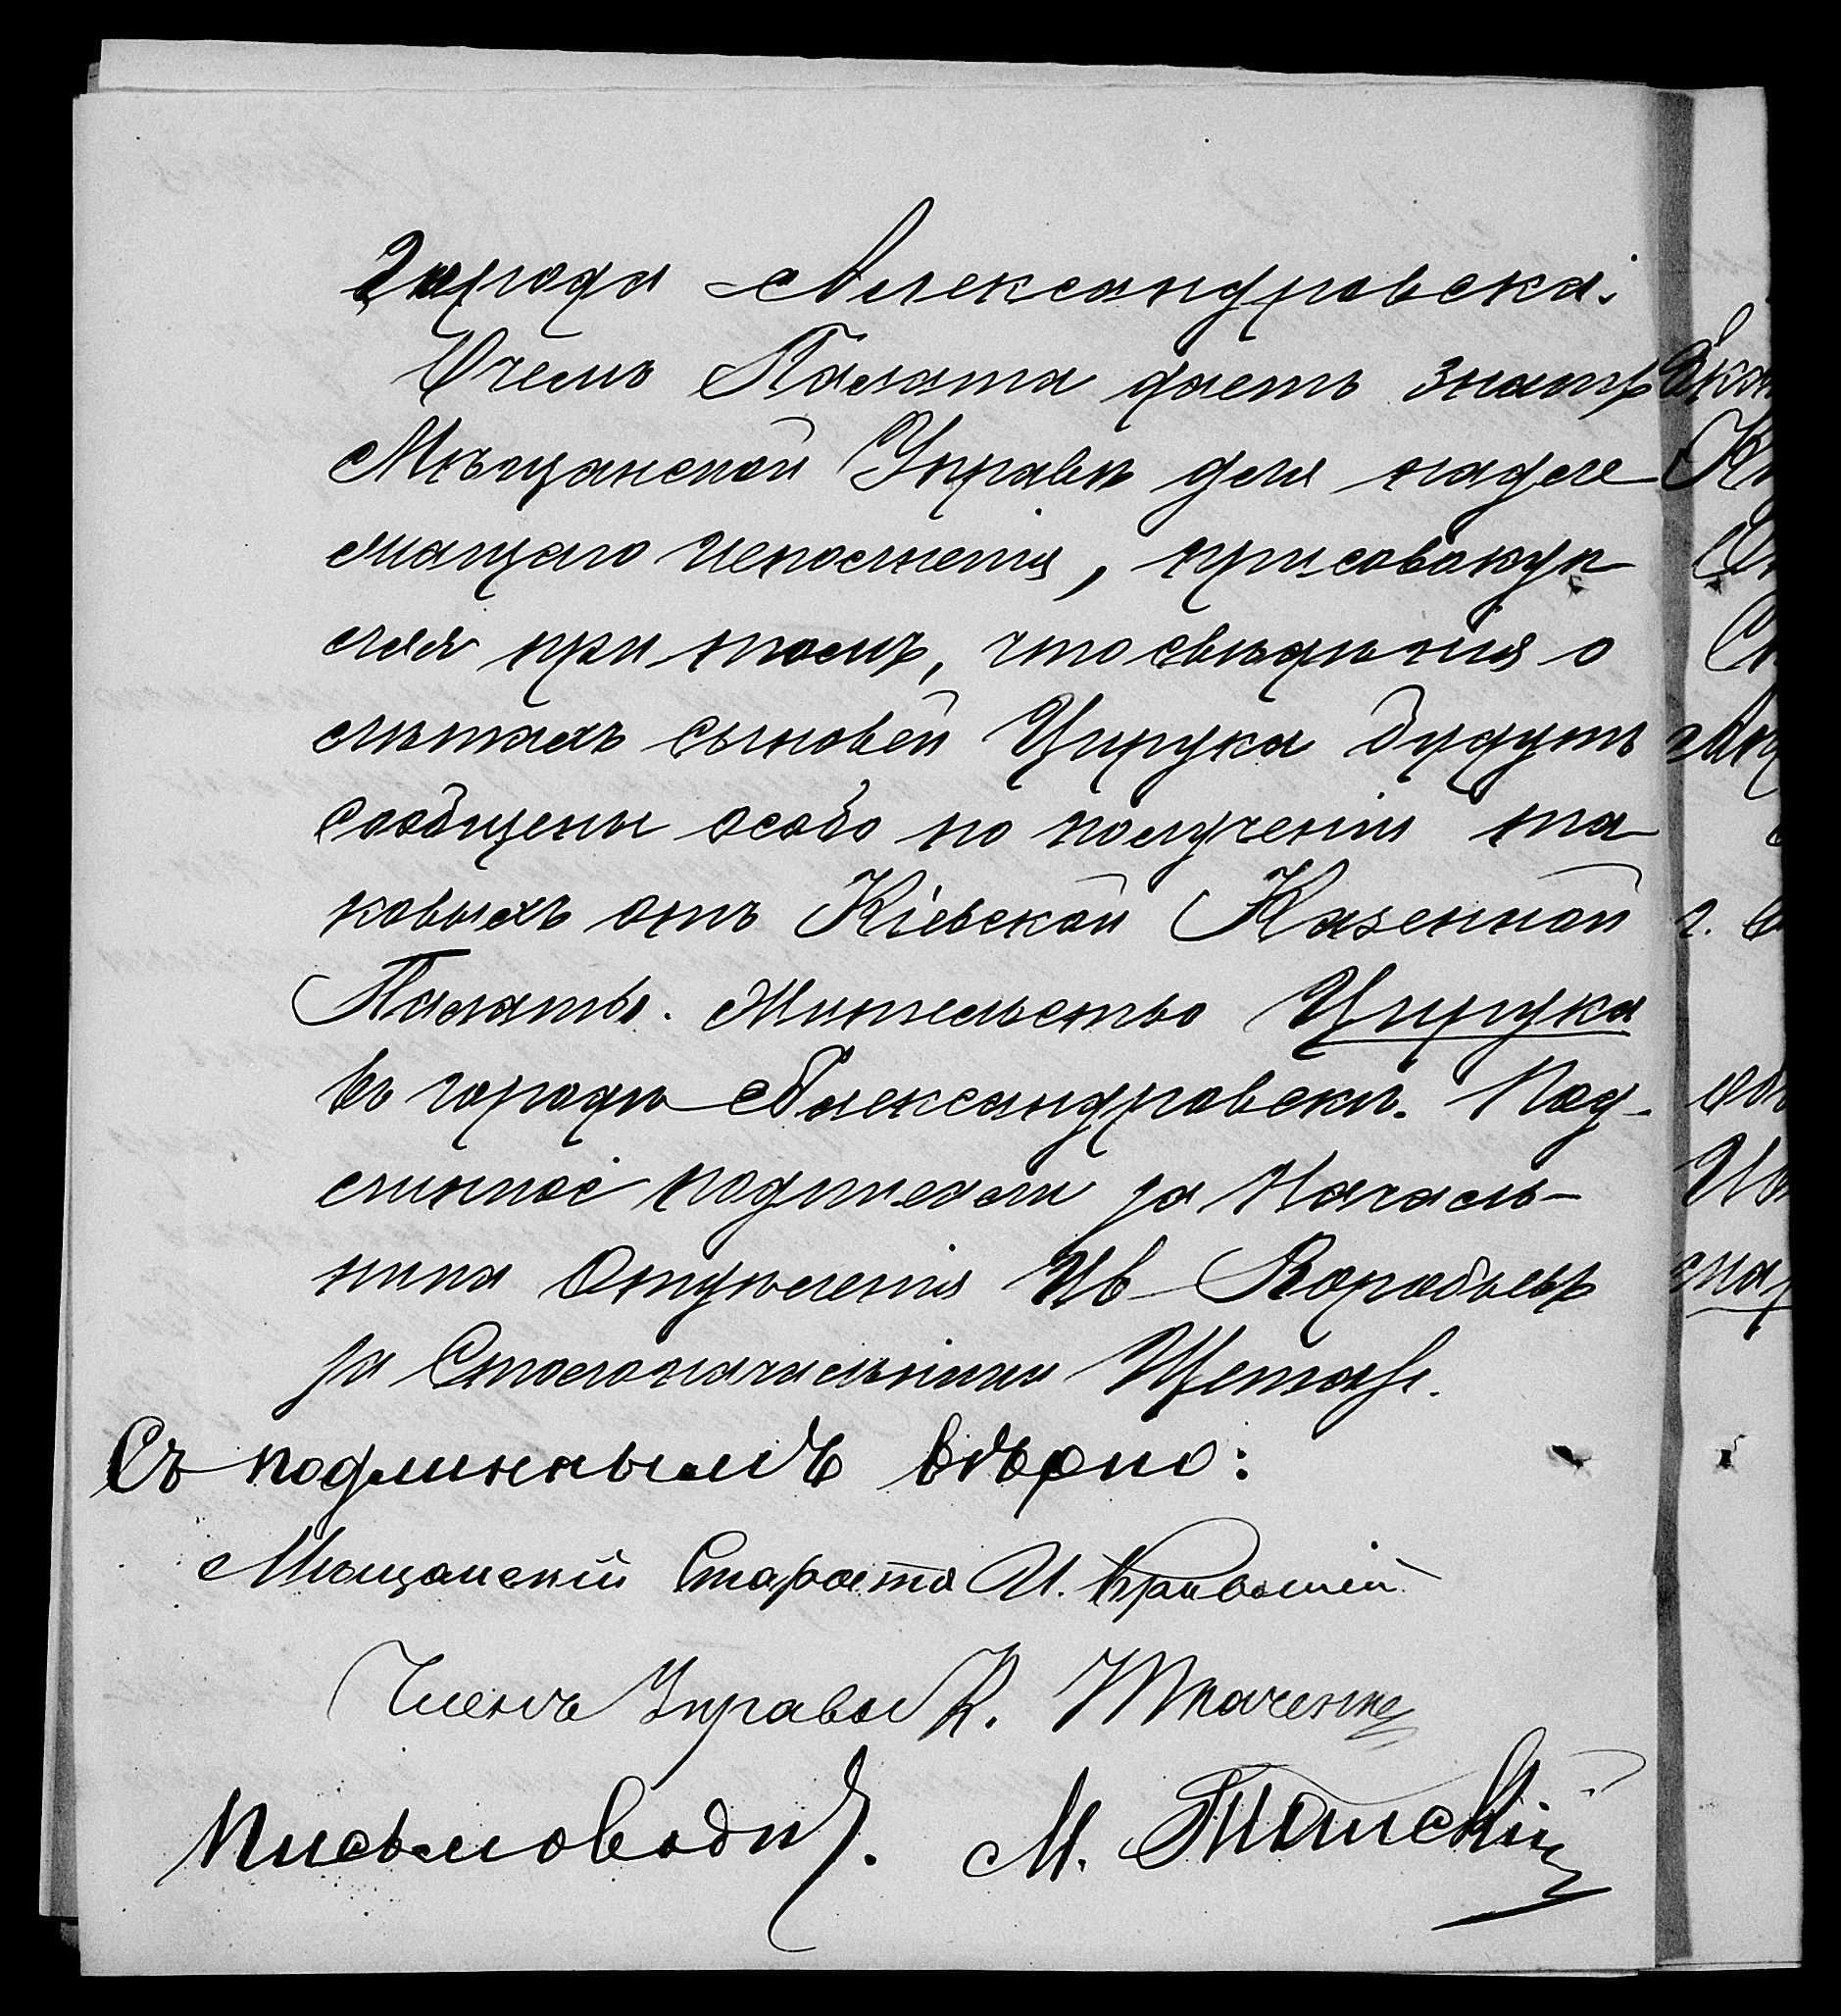 города Александровска.
О чемъ Палата даетъ знать
Мѣщанской Управѣ для надле
жащаго исполненія, присовокуп
ляя при томъ, что свѣдѣнія о
лѣтахъ сыновей Цирука будутъ
сообщены особо по полученіи та
ковыхъ отъ Кіевской Казенной
Палаты. Жительство Цирука
въ городѣ Александровскѣ. Под-
линное подписали за Началь-
ника Отдѣленія Ив Воробьевъ
за Столоначальника
Съ подлиннымъ вѣрно:
Мѣщанскій Староста И.
Членъ Управы К. Ткаченко
Письмоводит. М.